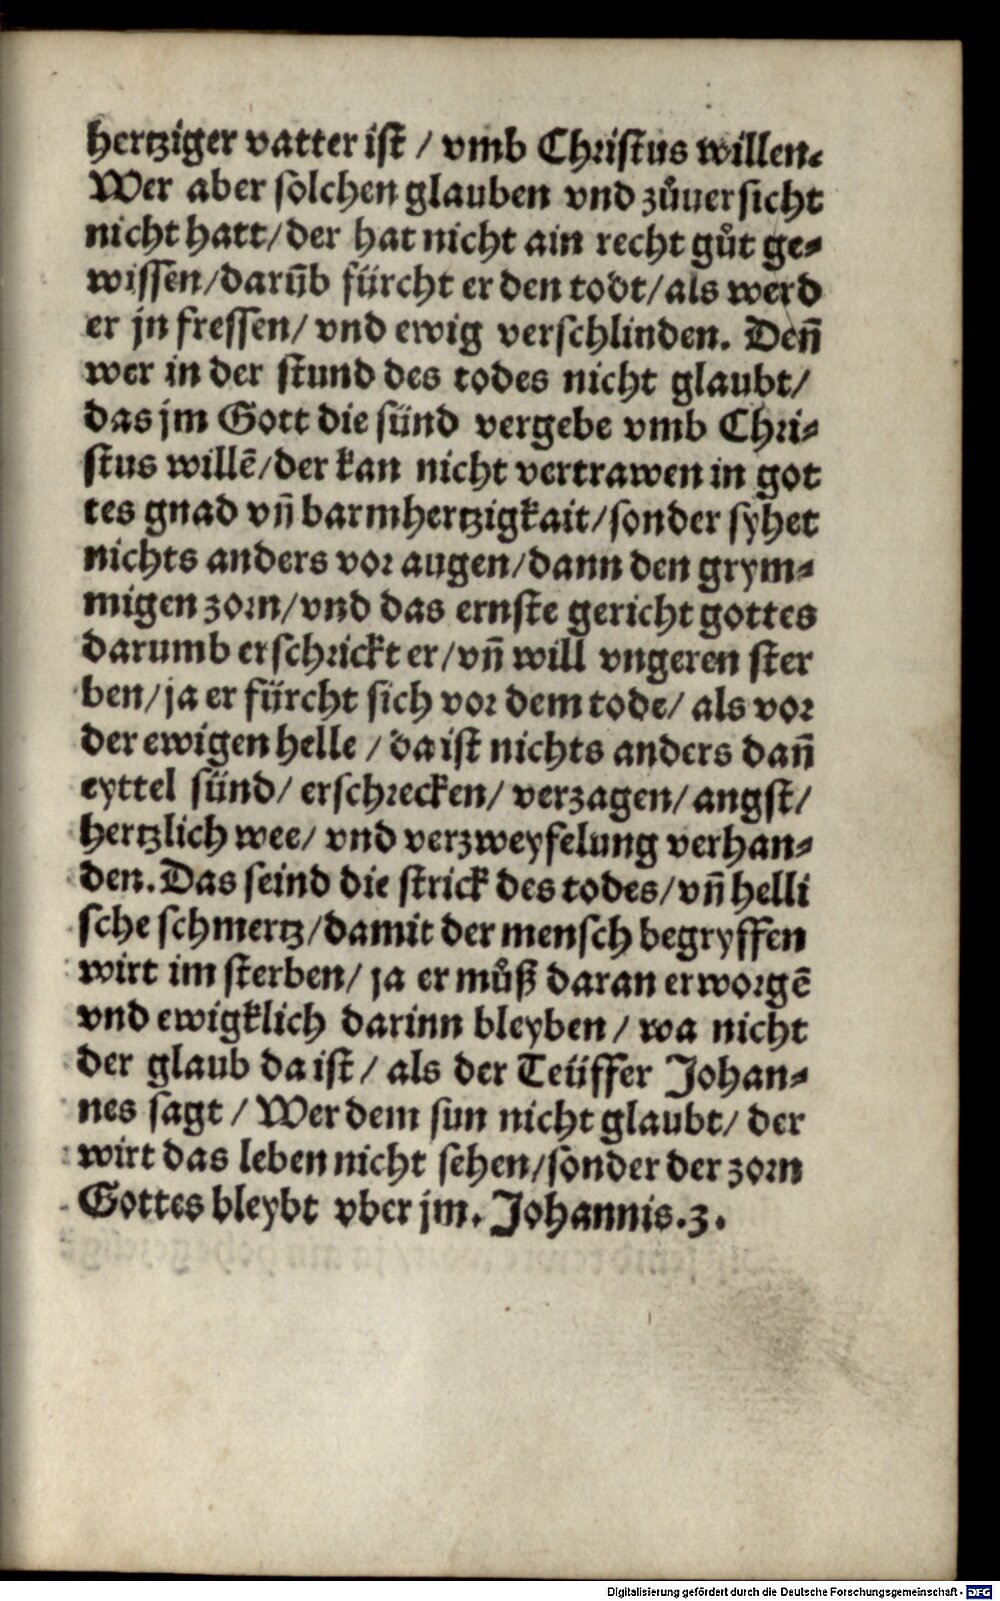 hertziger vatter ist / vmb Christus willen.
Wer aber solchen glauben vnd zůuersicht
nicht hatt/der hat nicht ain recht gůt ge-
wissen/darũb fürcht er den todt/als werd
er jn fressen/ vnd ewig verschlinden. Deñ
wer in der stund des todes nicht glaubt/
das jm Gott die sünd vergebe vmb Chri-
stus willẽ/der kan nicht vertrawen in got
tes gnad vñ barmhertzigkait/sonder syhet
nichts anders vor augen/dann den grym-
migen zorn/vnd das ernste gericht gottes
darumb erschrickt er/vñ will vngeren ster
ben/ja er fürcht sich vor dem tode/ als vor
der ewigen helle / da ist nichts anders dañ
eyttel sünd/ erschrecken/ verzagen/ angst/
hertzlich wee/ vnd verzweyfelung verhan-
den. Das seind die strick des todes/vñ helli
sche schmertz/damit der mensch begryffen
wirt im sterben/ ja er můß daran erworgẽ
vnd ewigklich darinn bleyben / wa nicht
der glaub da ist / als der Teüffer Johan-
nes sagt / Wer dem sun nicht glaubt/ der
wirt das leben nicht sehen/sonder der zorn
Gottes bleybt vber jm. Johannis.3.
Digitalisierung gefördert durch die Deutsche Forschungsgemeinschaft - DFG